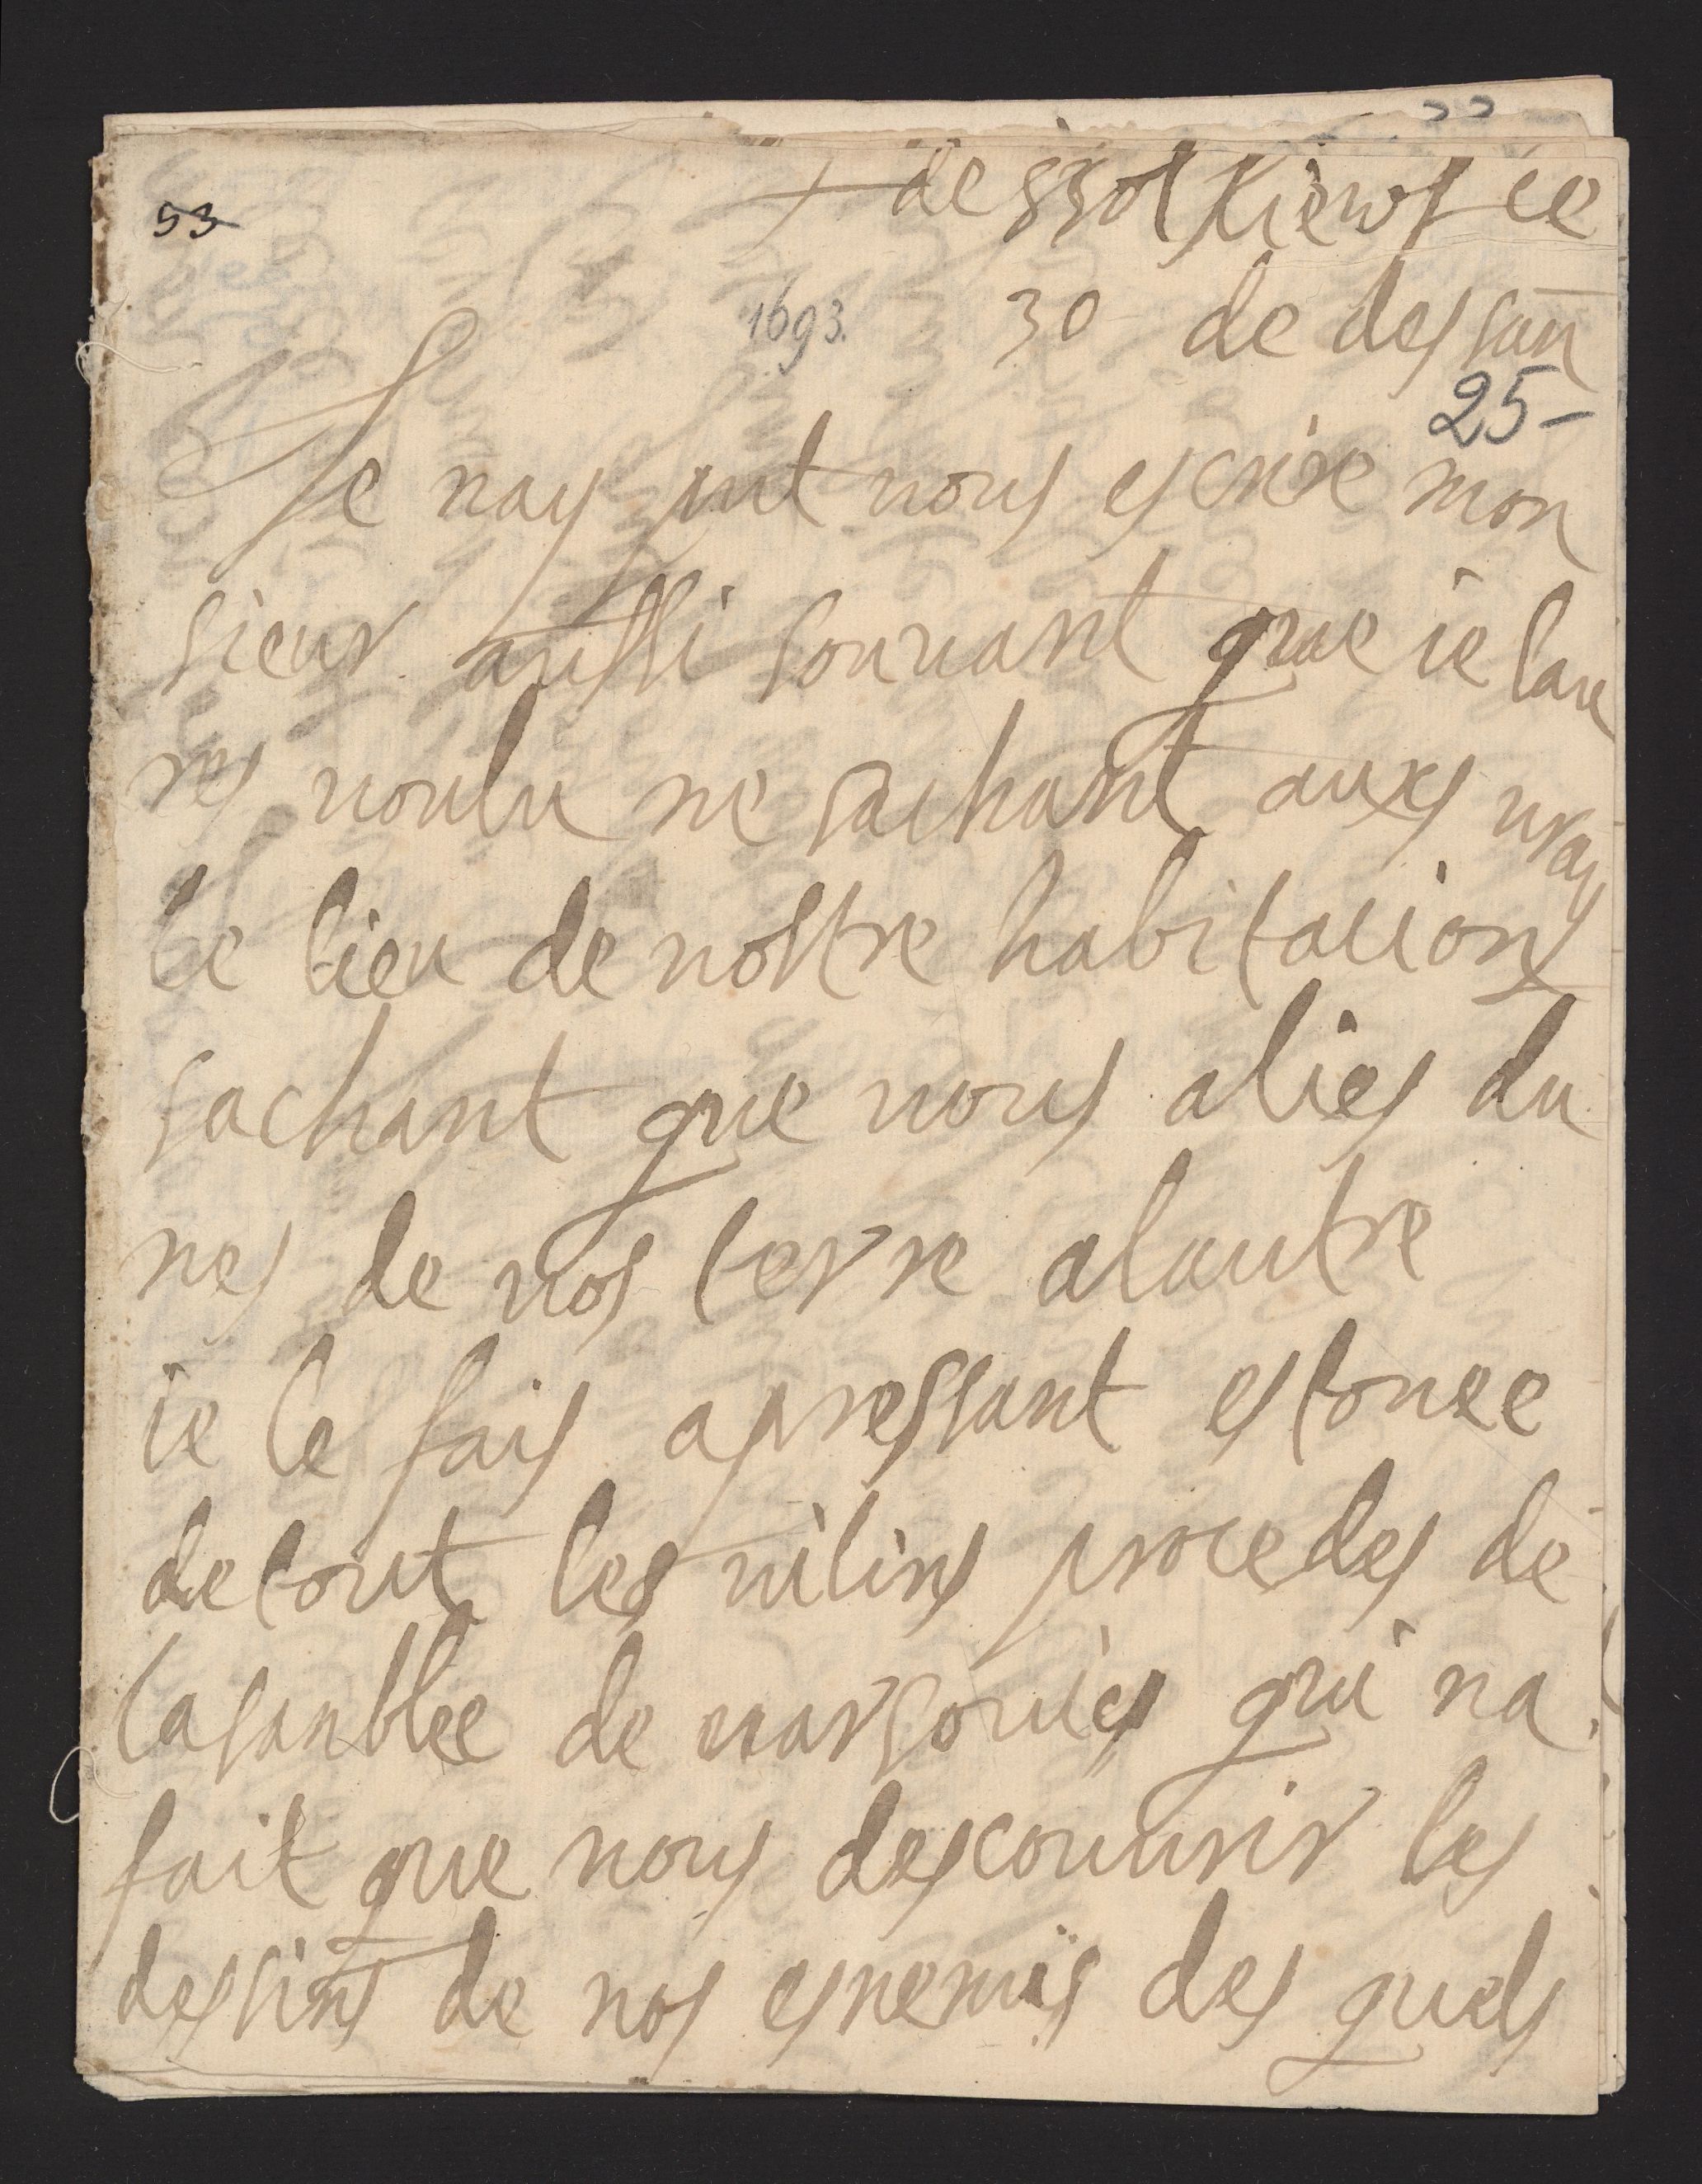 + de szolkiewf ce
53
1693. 30 de dessan
25-
Je nay put vous escrire mon
sieur aussi souuant que ie lau
res voulu ne sachant auxs vray
le lieu de vostre habitacions
sachant que vous alies du
nes de vos terre alautre
ie le fais apressant estonee
de tout les vilins procedes de
lasanblee de varsovies qui na
fait que nous descouurir les
dessins de nos esnemis des quels